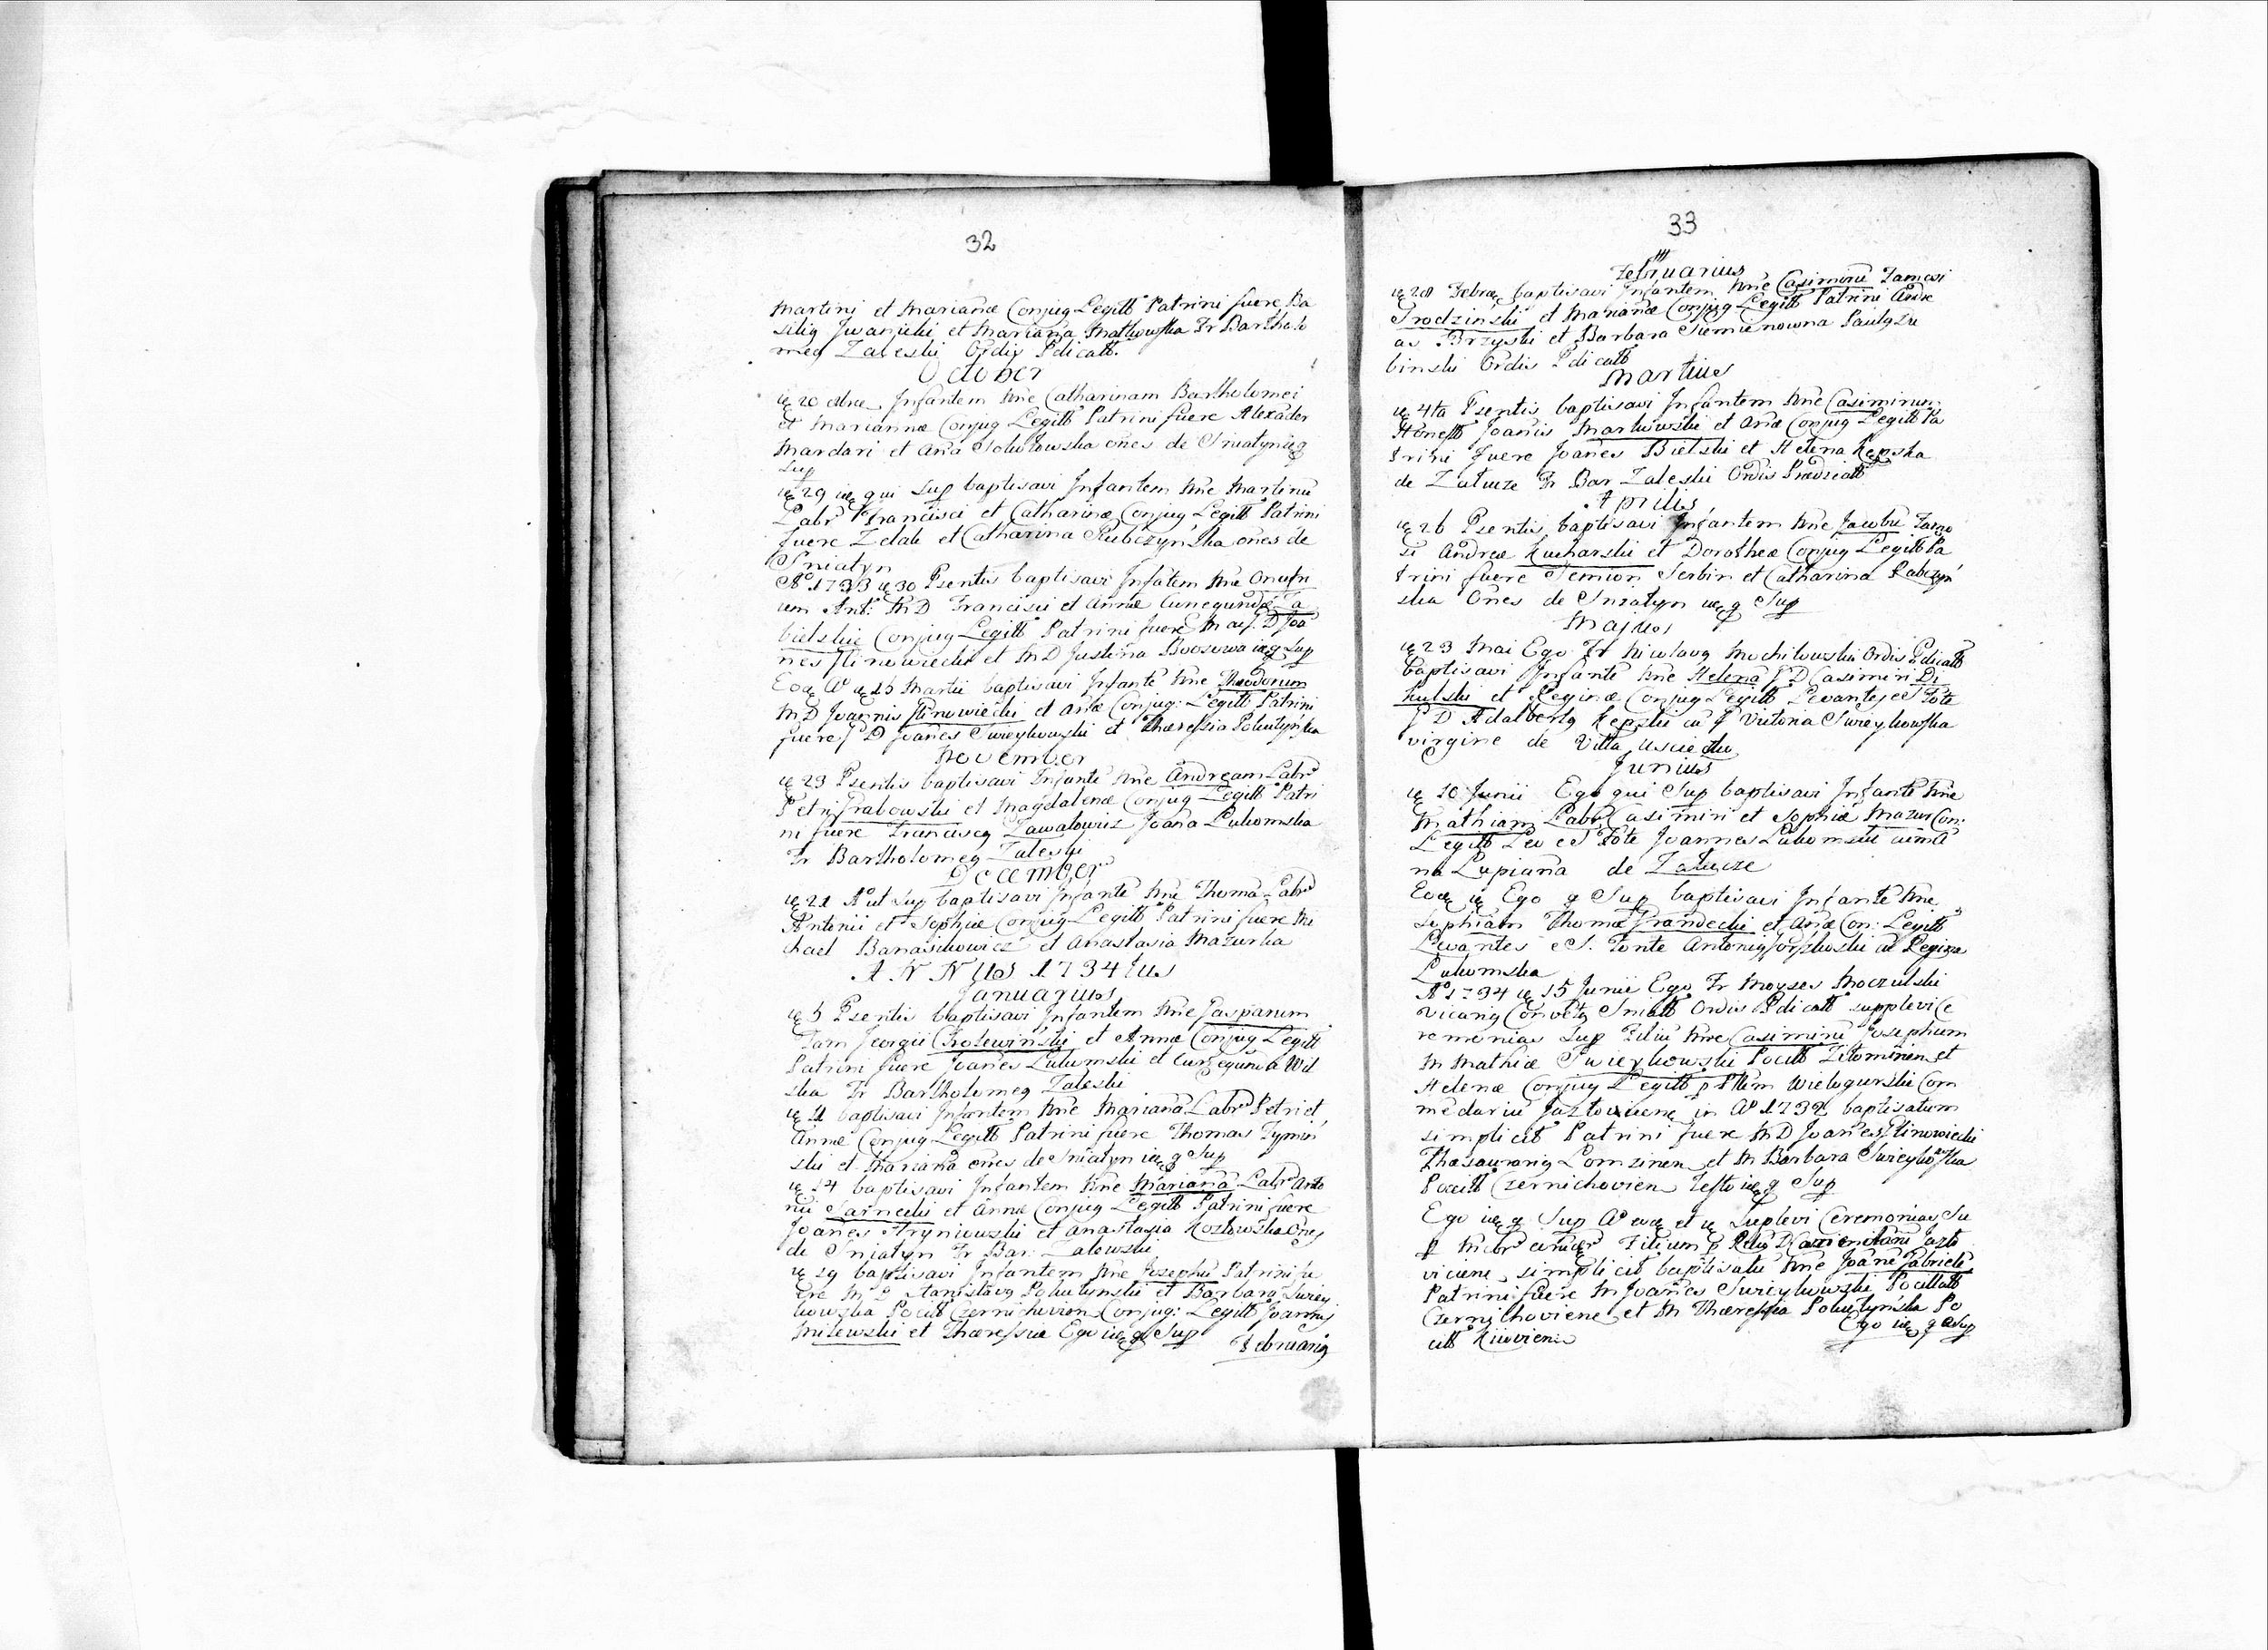 32
Martini et Marianæ Conjug Legitt Patrini fuere Ba
silig Jwanicki et Mariana Matkowska Fr Bartholo
meg Zaleski Ordis Pdicatt.
October
20 Infantem nne Catharinam Bartholomei
et Mariannæ Conjug Legitt Patrini fuere Alexader
Mardari et Ana Sokołowska ones de Sniatyn
Sup
29 qui Sup baptisavi Infantem nne Martinū
Labr Francisci et Catharinæ Conjug Legitt Patrini
fuere et Catharina Rubczyńska ones de
Sniatyn
Aº 1733 30 Psentis baptisavi Infātem nne Onufri
um Ant: M D Francisci et Annæ Cunegundæ Ła
bielskie Conjug Legitt Patrini fuere D Joa
nes Ilinowiecki et M D Justina Sup
Eod Aº 25 Martii baptisavi Infantē nne Theodorum
M D Joannis Ilinowiecki et Anæ Conjug: Legitt Patrini
fuere D Joanes Swieykowski et Theressia Połutyńska
November
23 Psentis baptisavi Infantē nne Andream Labr
Petri Grabowski et Magdalenæ Conjug Legitt Patri
ni fuere Franciscg Zawałowicz Joana Łukomska
Fr Bartholomeg Zaleski
December
21 Aº ut Sup baptisavi Infantē nne Thomā Labr
Antonii et Sophiæ Conjug Legitt Patrini fuere Mi
chael Banasikowicz et Anastasia Mazurka
ANNUS 1734tus
Januarius
5 Psentis baptisavi Infantem nne Gasparum
Fam Georgii Krolewiński et Annæ Conjug Legitt
Patrini fuere Joanes Łukomski et Cunegunda Wil
ska Fr Bartholomeg Zaleski
11 baptisavi Infantem nne Marianā Labr Petri et
Annæ Conjug Legitt Patrini fuere Thomas Tymiń
ski et Mariana ones de Sniatyn q Sup
14 baptisavi Infantem nne Marianā Labr Anto
nii Sarnecki et Annæ Conjug Legitt Patrini fuere
Joanes Hryniewski et Anastasia Kozłowska ones
de Sniatyn Fr Bar: Zalewski
29 baptisavi Infantem nne Josephū Patrini fu
ere M D Stanisławg Połutynski et Barbara Swiey
kowska Pocill Czernichovien Conjug: Legitt Joannis
Milewski et Theressiæ Ego q Sup
Februarig
33
Februarius
28 Febræ baptisavi Infantem nne Casimirū Famosi
Grodzinski et Marianæ Conjug Legitt Patrini Andre
as Brzyski et Barbara Siemienowna Paulg Zu
binski Ordis Pdicatt
Martius
4ta Psentis baptisavi Infantem nne Casimirum
Honestt Joanis Markowski et Anæ Conjug Legitt Pa
trini fuere Joanes Bielski et Helena Kępska
de Załucze Fr Bar Zaleski Ordis Prædicatt
Aprilis
26 Psentis baptisavi Infantem nne Jacobū Famo
si Andreæ Kucharski et Dorotheæ Conjug Legitt Pa
trini fuere Semion Serbin et Catharina Rabczyń
ska Ones de Sniatyn q Sup
Majus
23 Mai Ego Fr Nicolaus Mochilowski Ordis Pdicatt
baptisavi Infantē nne Helenā D Casimiri Di
kulski et Reginæ Conjug Legitt Levantes e S Fote
D Adalbertg Kępski cū Victoria Swieykowska
virgine de Villa Usciecko
Junius
10 Junii Ego qui Sup baptisavi Infantē nne
Mathiam Labr Casimiri et Sophiæ Mazur Con:
Legitt Lev e S Fote Joannes Łukomski cū
na Lupiana de Załucze
Eod Ego q Sup baptisavi Infantē nne
Sophiam Thomæ Grandecki et Anæ Con: Legitt
Levantes e S. Fonte Antonig cū Regina
Łukomska
Aº 1734 15 Junii Ego Fr Moyses Moczulski
Vicarig Convētg Sniatt Ordis Pdicatt supplevi Ce
remonias Sup Filiū nne Casimirū Josephum
M Mathiæ Swieykowski Pocill Zitomirien et
Helenæ Conjug Legitt p Wielogurski Com
mēdariū Jazłowicen in Aº 1732 baptisatum
simplicit Patrini fuere M D Joanes Ilinowiecki
Thesaurarig Łomzinen et M Barbara Swieykowska
Pocill Czernichovien q Sup
Ego q Sup Aº eod et Suplevi Ceremonias Su
p Filium p Jazło
viciene simplicit baptisatū nne Joane Gabrielē
Patrini fuere M Joanes Swieykowski Pocillatt
Czernichoviene et M Theressia Połutyńska Po
cill Kiiovien
Ego q Sup